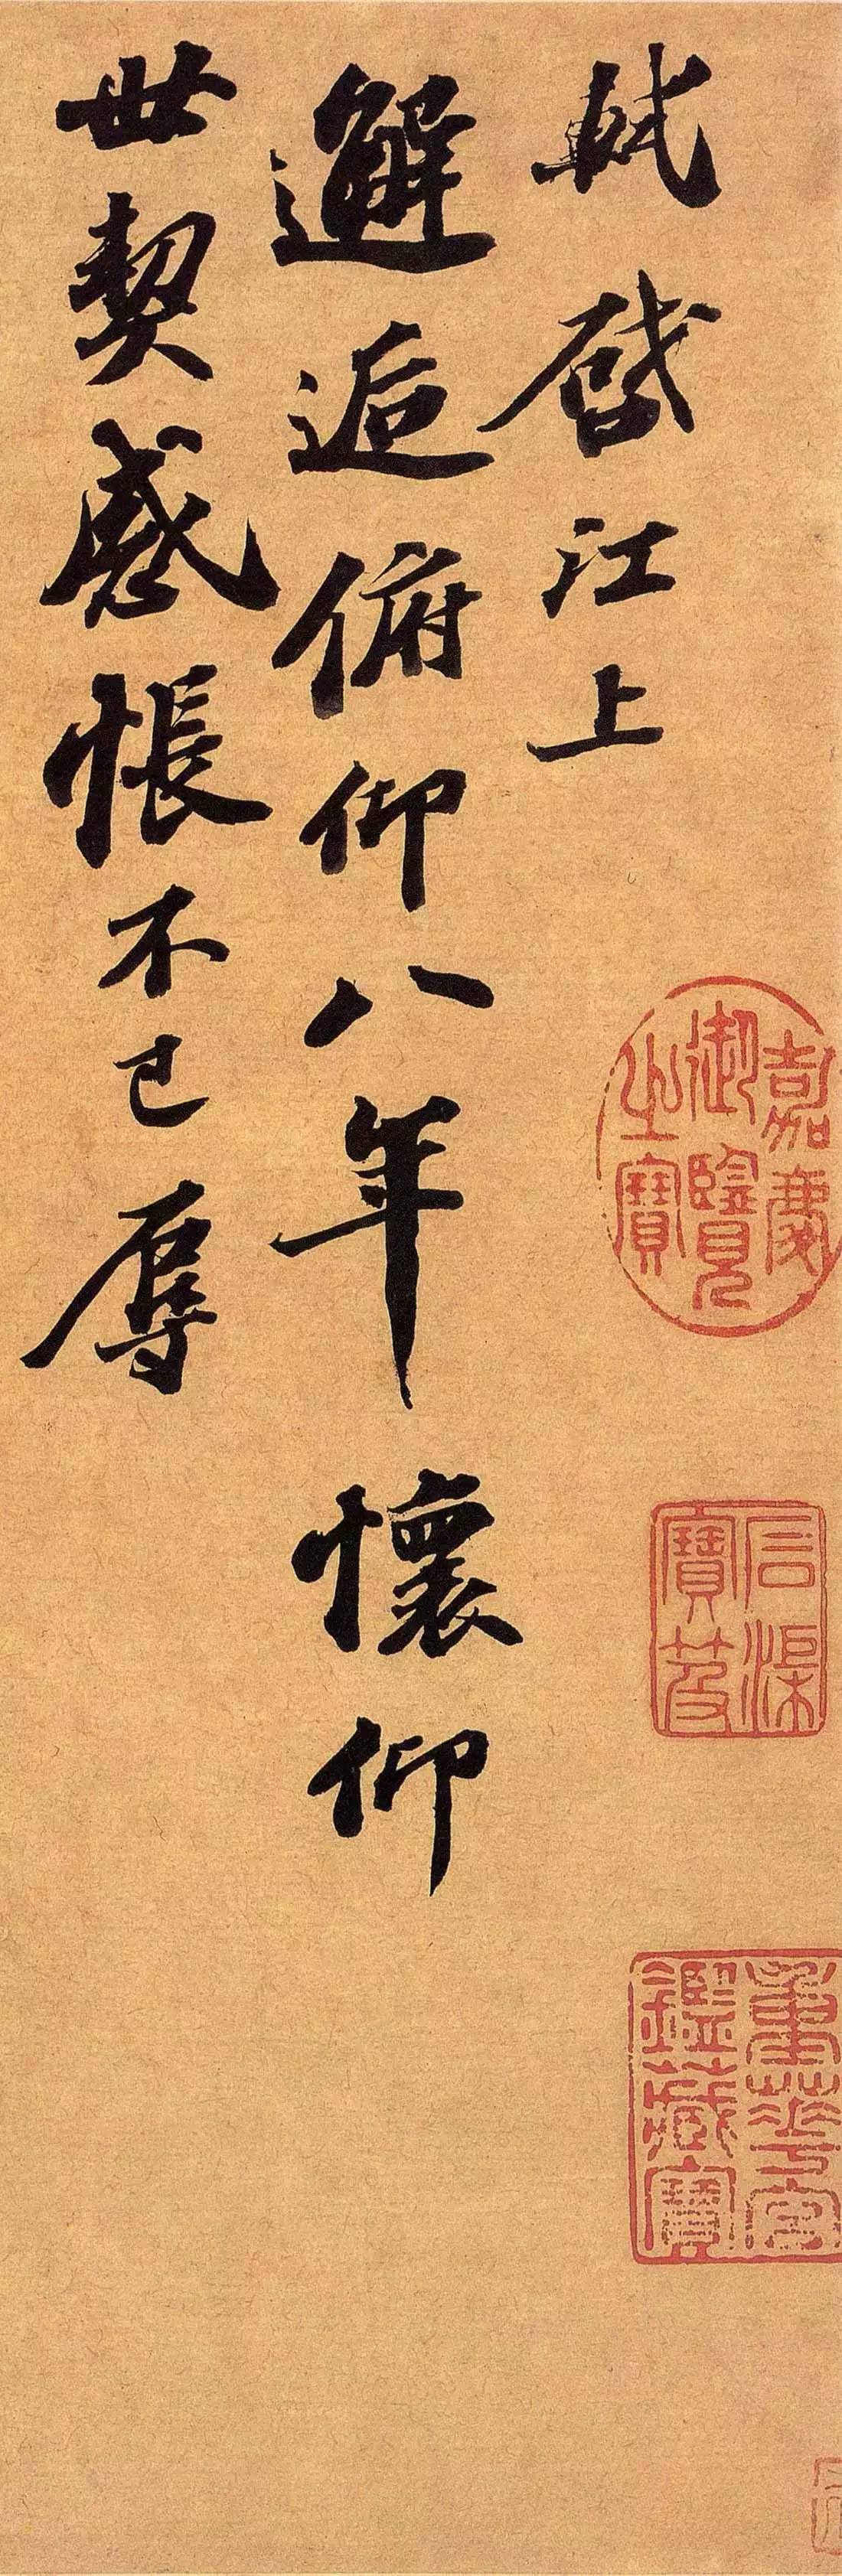 軾啓江上
邂逅俯仰八年懷仰
世契感悵不已辱
嘉慶
御覽
之寶
石渠
寶笈
重華宮
鑑藏寶